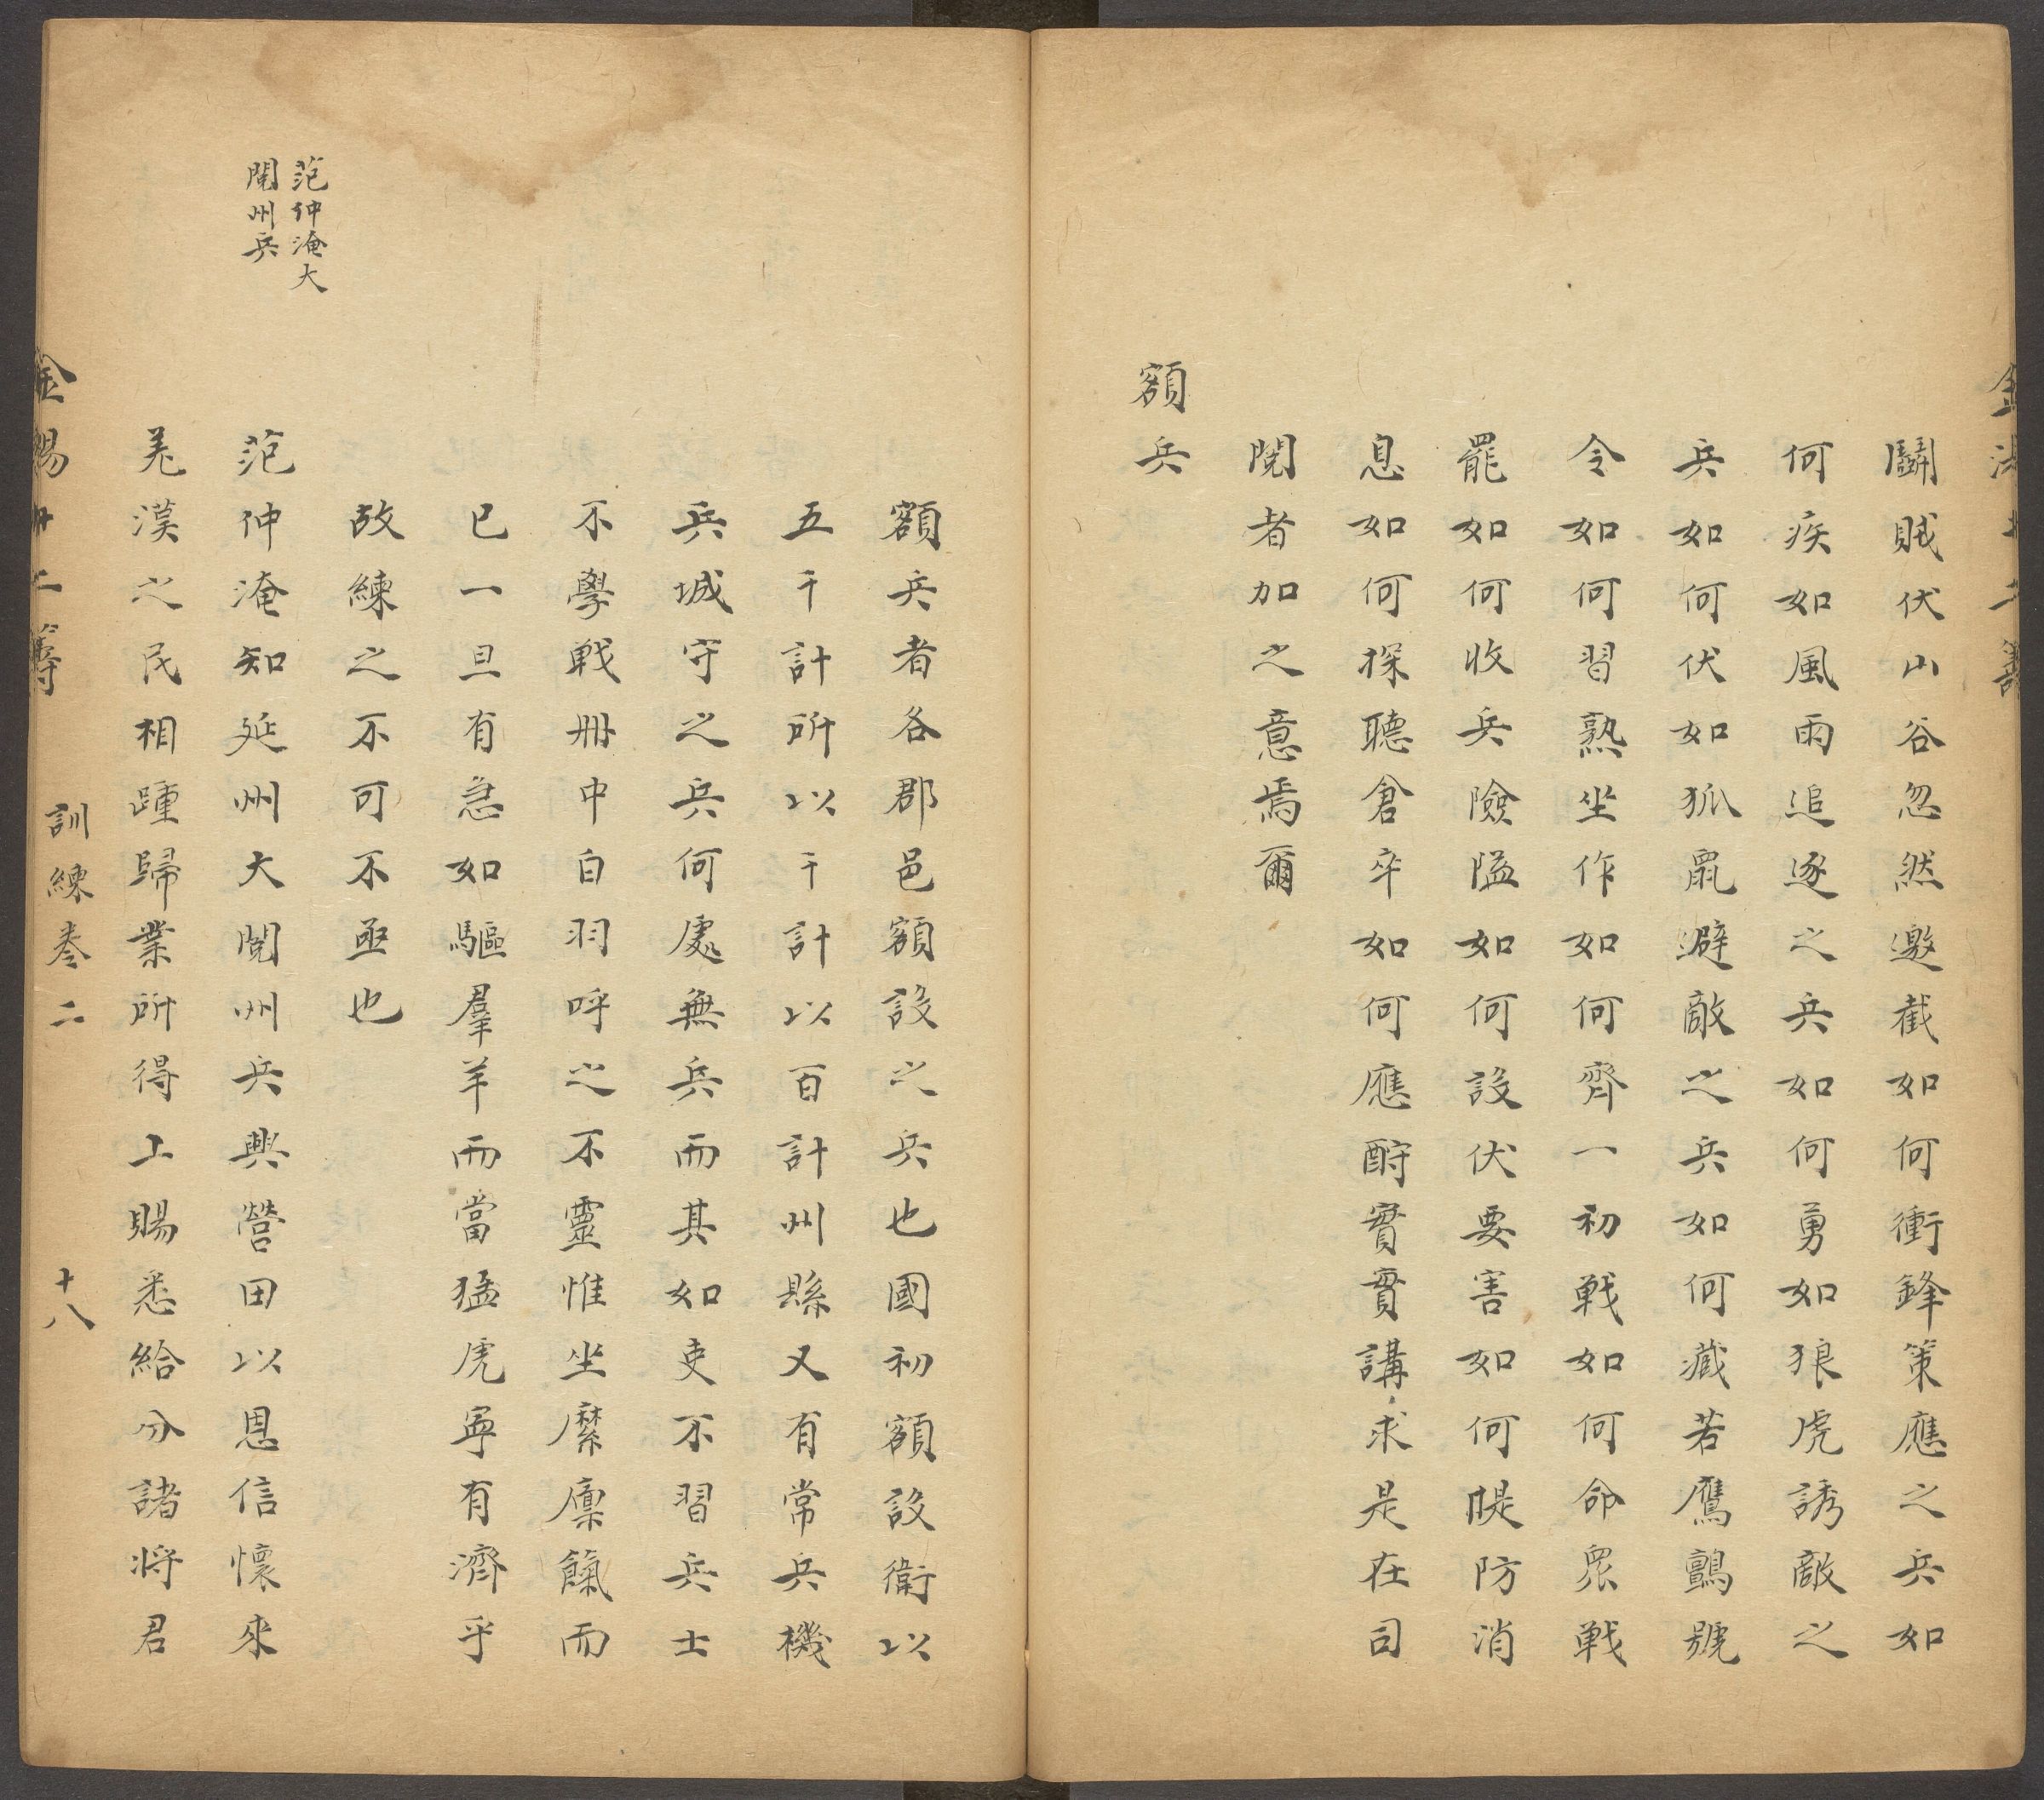 鬬賊伏山谷忽然邀截如何衝鋒策應之兵如
何疾如風雨追逐之兵如何勇如狼虎誘敵之
兵如何伏如狐鼠避敵之兵如何藏若鷹鸇號
令如何習熟坐作如何齊一初戰如何命眾戰
罷如何收兵險隘如何設伏要害如何隄防消
息如何探聽倉卒如何應酧實實講求是在司
閱者加之意焉爾
額兵
額兵者各郡邑額設之兵也國初額設衛以
五千計所以千計以百計州縣又有常兵機
兵城守之兵何處無兵而其如吏不習兵士
不學戰冊中白羽呼之不靈惟坐縻廩餼而
已一旦有急如驅羣羊而當猛虎寧有濟乎
故練之不可不亟也
范仲淹大
閱州兵
范仲淹知延州大閱州兵興營田以恩信懷來
羌漢之民相踵歸業所得上賜悉給分諸将君
金湯十二籌
訓練卷二
十八